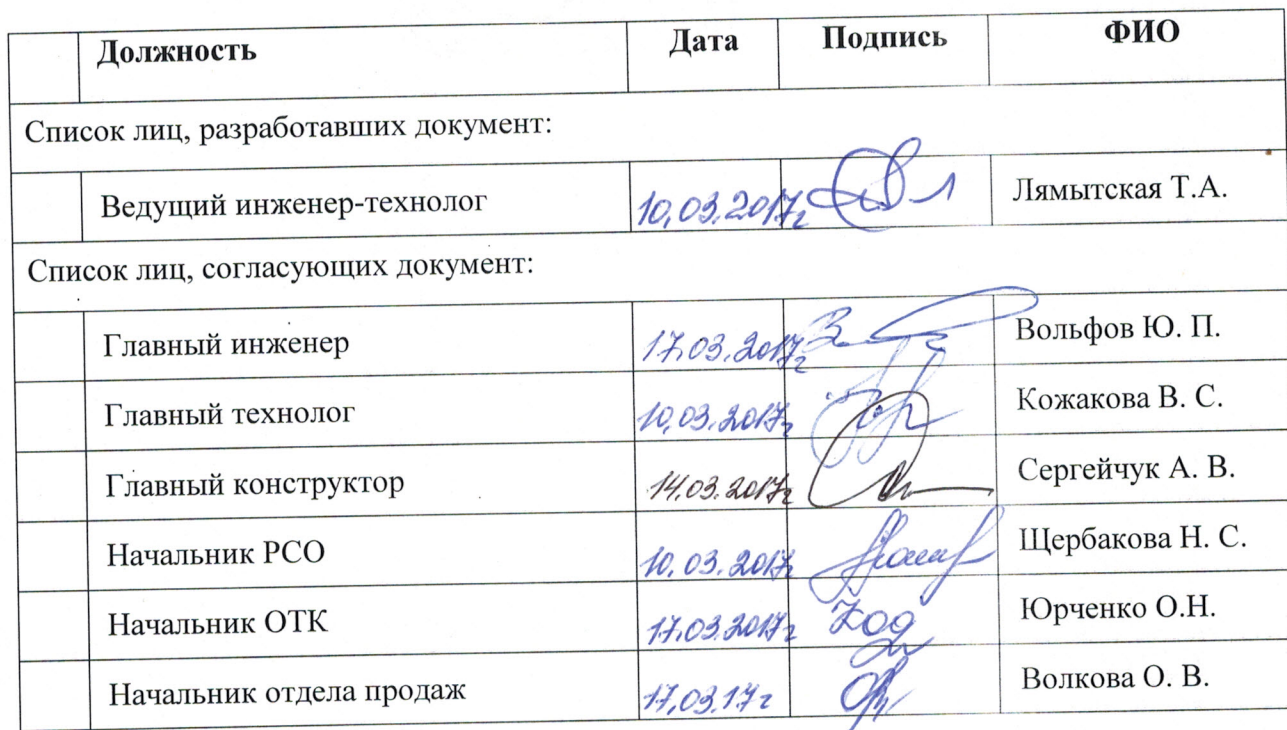 Должность Дата Подпись ФИО
Список лиц, разработавших документ:
Ведущий инженер-технолог 10.03.2017г Лямытская Т.А.
Список лиц, согласующих документ:
Главный инженер 17.03.2017г Вольфов Ю. П.
Главный технолог 10.03.2017г Кожакова В. С.
Главный конструктор 14.03.2017г Сергейчук А. В.
Начальник РСО 10.03.2017г Щербакова Н. С.
Начальник ОТК 17.03.2017г Юрченко О.Н.
Начальник отдела продаж 17.03.17г Волкова О. В.